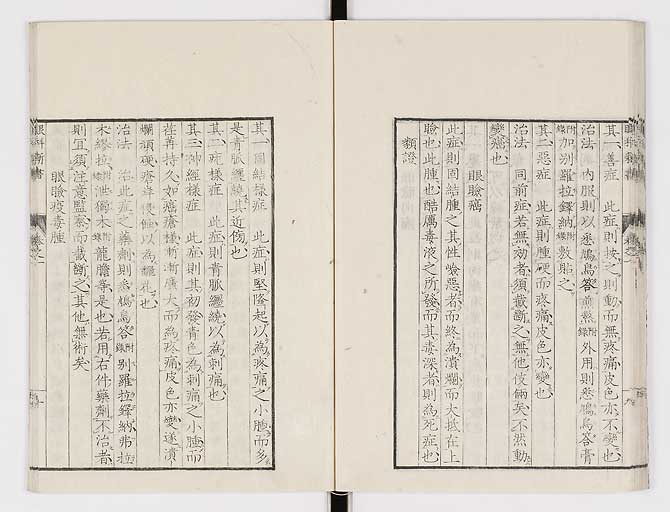 其一善症 此症則按之則動而無疼痛皮色亦不變也
治法 內服則以悉鳩烏答前煎附錄外用則悉鳩烏答膏
附錄加別羅拉鐸納附錄敷貼之
其二惡症 此症則腫硬而疼痛皮色亦變也
治法 同前症若無効者須截斷之無他伎倆矣不然動
變癌也
眼瞼癌
此症則固結腫之其性嶮惡者而終為潰爛而大抵在上
瞼也此腫也酷厲毒液之所發而其毒深者則為死症也
類證
其一固結樣症 此症則堅隆起以為疼痛之小腫而多
是青脈纏繞其近傷也
其二死樣症 此症則青脈纏繞以為刺痛也
其三神經樣症 此症則其初發青色為刺痛之小腫而
荏苒持久如癌瘡樣漸漸廣大而為疼痛皮色亦變遂潰
爛頑硬瘡弇侵蝕以為花也
治法 治此症之藥劑則悉鳩烏答附錄別羅拉鐸納弗拉
木繆拉附錄泄獨木附錄龍膽等是也若用右件藥劑不治者
則宜須注意監察而截斷之其他無術矣
眼瞼疫毒腫
眼科新書